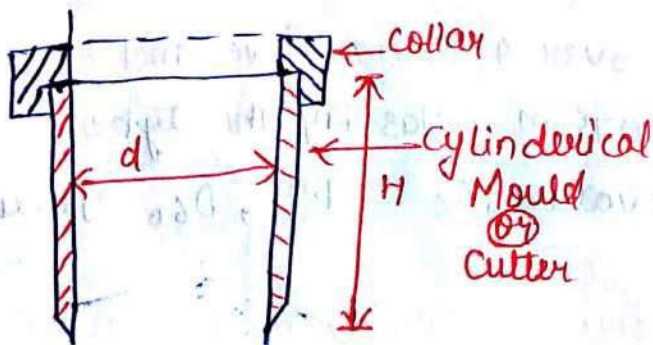 collar
d
H
cylinderical
Mould
or
Cutter